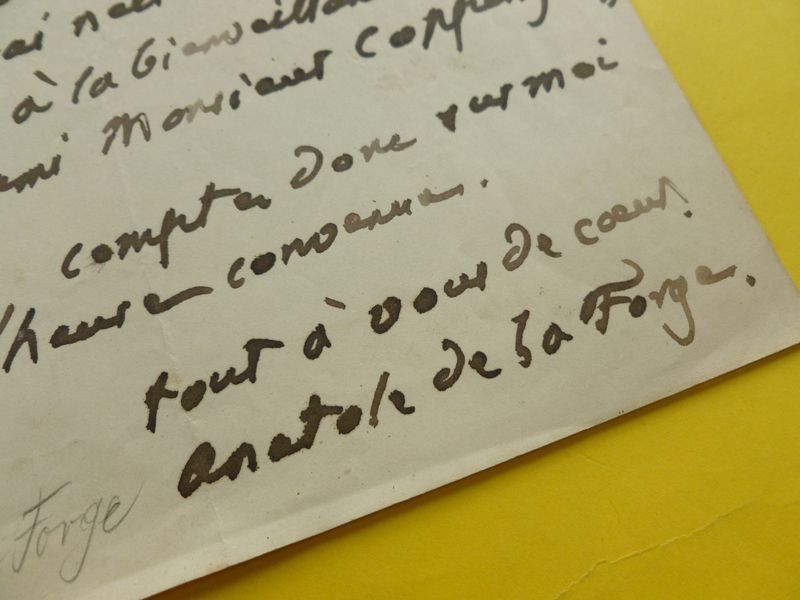 à la bienveillan
Monsieur Coppens
comptez donc sur moi
l'heure convenue.
tout à vous de cœur.
anatole de la Forge.
Forge